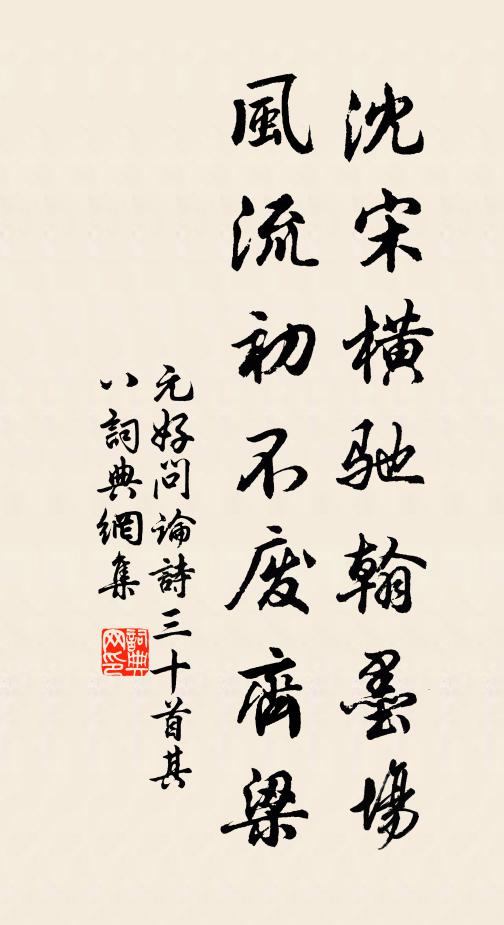 沈宋橫馳翰墨場
風流初不废齊梁
元好问論詩三十首其
八詞典網集
詞典网印